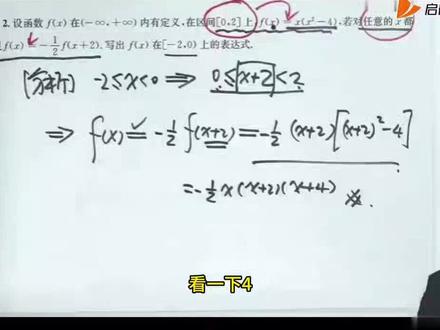 启
2. 设函数 f(x) 在(-∞,+∞)内有定义,在区间[0,2]上,f(x)=x(x²-4),若对任意的 x 都
f(x)=-1/2 f(x+2),写出 f(x) 在[-2,0)上的表达式.
[分析] -2≤x<0 ⟹ 0≤x+2<2
⟹ f(x)=-1/2 f(x+2)=-1/2 (x+2)[(x+2)²-4]
=-1/2 x(x+2)(x+4)
看一下4